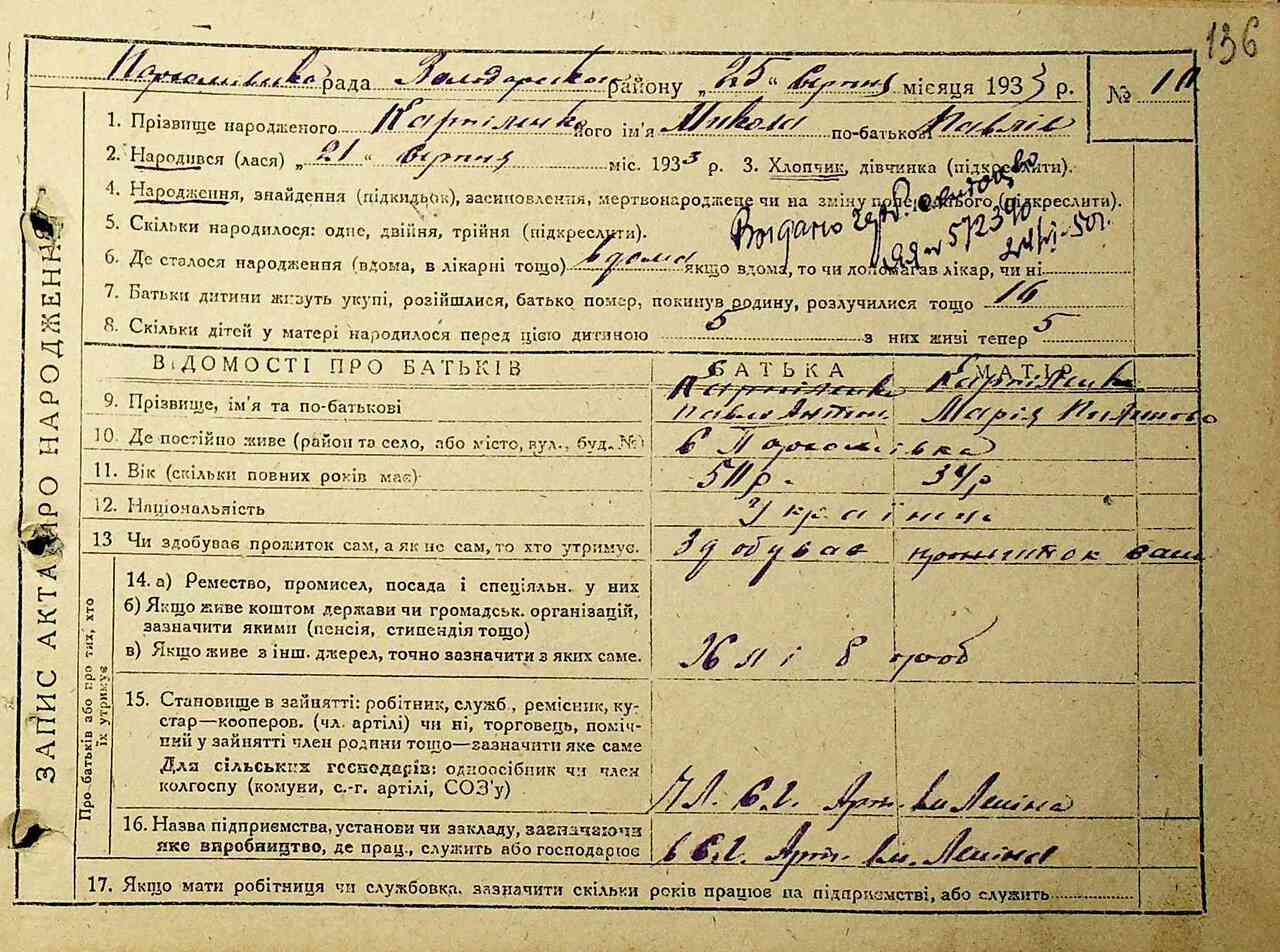 136
рада Володарського району „25“ серпня місяця 1933 р. №
1. Прізвище народженого Карпіленко його ім'я Микола по-батькові Павлів
2. Народився (лася) „21“ серпня міс. 1933 р. 3. Хлопчик, дівчинка (підкреслити).
4. Народження, знайдення (підкидьок), засиновлення, мертвонароджене чи на зміну попереднього (підкреслити).
5. Скільки народилося: одне, двійня, трійня (підкреслити).
6. Де сталося народження (вдома, в лікарні тощо) вдома якщо вдома, то чи допомагав лікар, чи ні
7. Батьки дитини живуть укупі, розійшлися, батько помер, покинув родину, розлучилися тощо 16
8. Скільки дітей у матері народилося перед цією дитиною 5 з них живі тепер 5
ВІДОМОСТІ ПРО БАТЬКІВ БАТЬКА МАТІР
Карпіленко Карпіленко
9. Прізвище, ім'я та по-батькові Павло Антон Марія
10. Де постійно живе (район та село, або місто, вул., буд. №)
11. Вік (скільки повних років має) 34р
12. Національність Українц.
13 Чи здобуває прожиток сам, а як не сам, то хто утримує. Здобуває прожиток сам
14. а) Ремество, промисел, посада і спеціяльн. у них
б) Якщо живе коштом держави чи громадськ. організацій,
зазначити якими (пенсія, стипендія тощо)
в) Якщо живе з інш. джерел, точно зазначити з яких саме. Хліборob
15. Становище в зайнятті: робітник, служб., ремісник, ку-
стар—кооперов. (чл. артілі) чи ні, торговець, поміч-
ний у зайнятті член родини тощо—зазначити яке саме
Для сільських господарів: одноосібник чи член
колгоспу (комуни, с.-г. артілі, СОЗ'у) Чл. С.г. Арт. ім Леніна
16. Назва підприємства, установи чи закладу, зазначаючи
яке виробництво, де прац., служить або господарює в С.г. Арт. ім. Леніна
17. Якщо мати робітниця чи службовка. зазначити скільки років працює на підприємстві, або служить
ЗАПИС АКТА ПРО НАРОДЖЕННЯ
Про батьків або про тих, хто
їх утримує